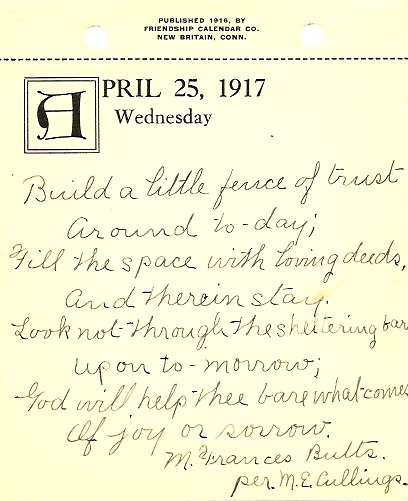 PUBLISHED 1916, BY
FRIENDSHIP CALENDAR CO.
NEW BRITAIN, CONN.
APRIL 25, 1917
Wednesday
Build a little fence of trust
Around to-day;
Fill the space with loving deeds,
And therein stay.
Look not through the sheltering bars
Upon to-morrow;
God will help thee bare what comes
Of joy or sorrow.
M. Frances Butts.
per. M. E. Cullings.